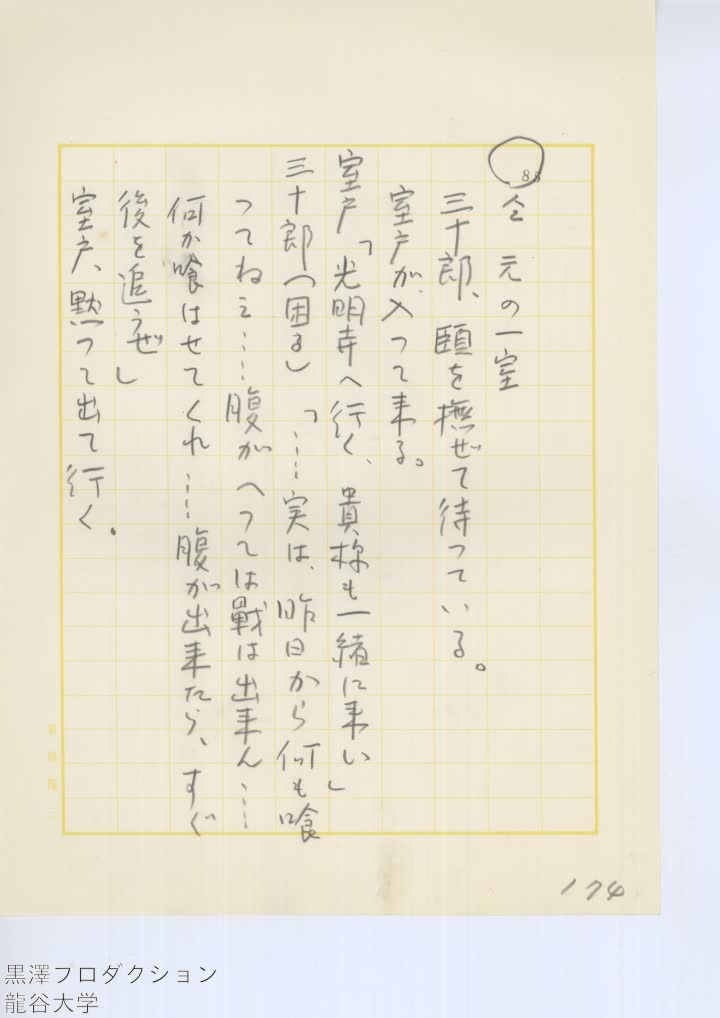 88
仝 元の一室
三十郎、頤を撫ぜて待つている。
室戸が入つて来る。
室戸「光明寺へ行く、貴様も一緒に来い」
三十郎(困る)「……実は、昨日から何も喰
つてねえ……腹がへつては戰は出来ん……
何か喰はせてくれ……腹が出来たら、すぐ
後を追うぜ」
室戸、黙つて出て行く。
174
黒澤プロダクション
龍谷大学